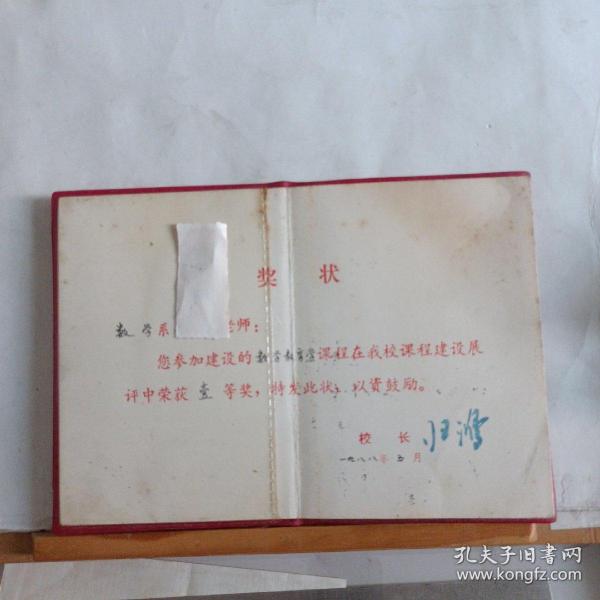 奖状
数学系 老师:
您参加建设的数学教育学课程在我校课程建设展
评中荣获壹等奖,特发此状,以资鼓励。
校长
一九八八年五月
孔夫子旧书网
www.kongfz.com